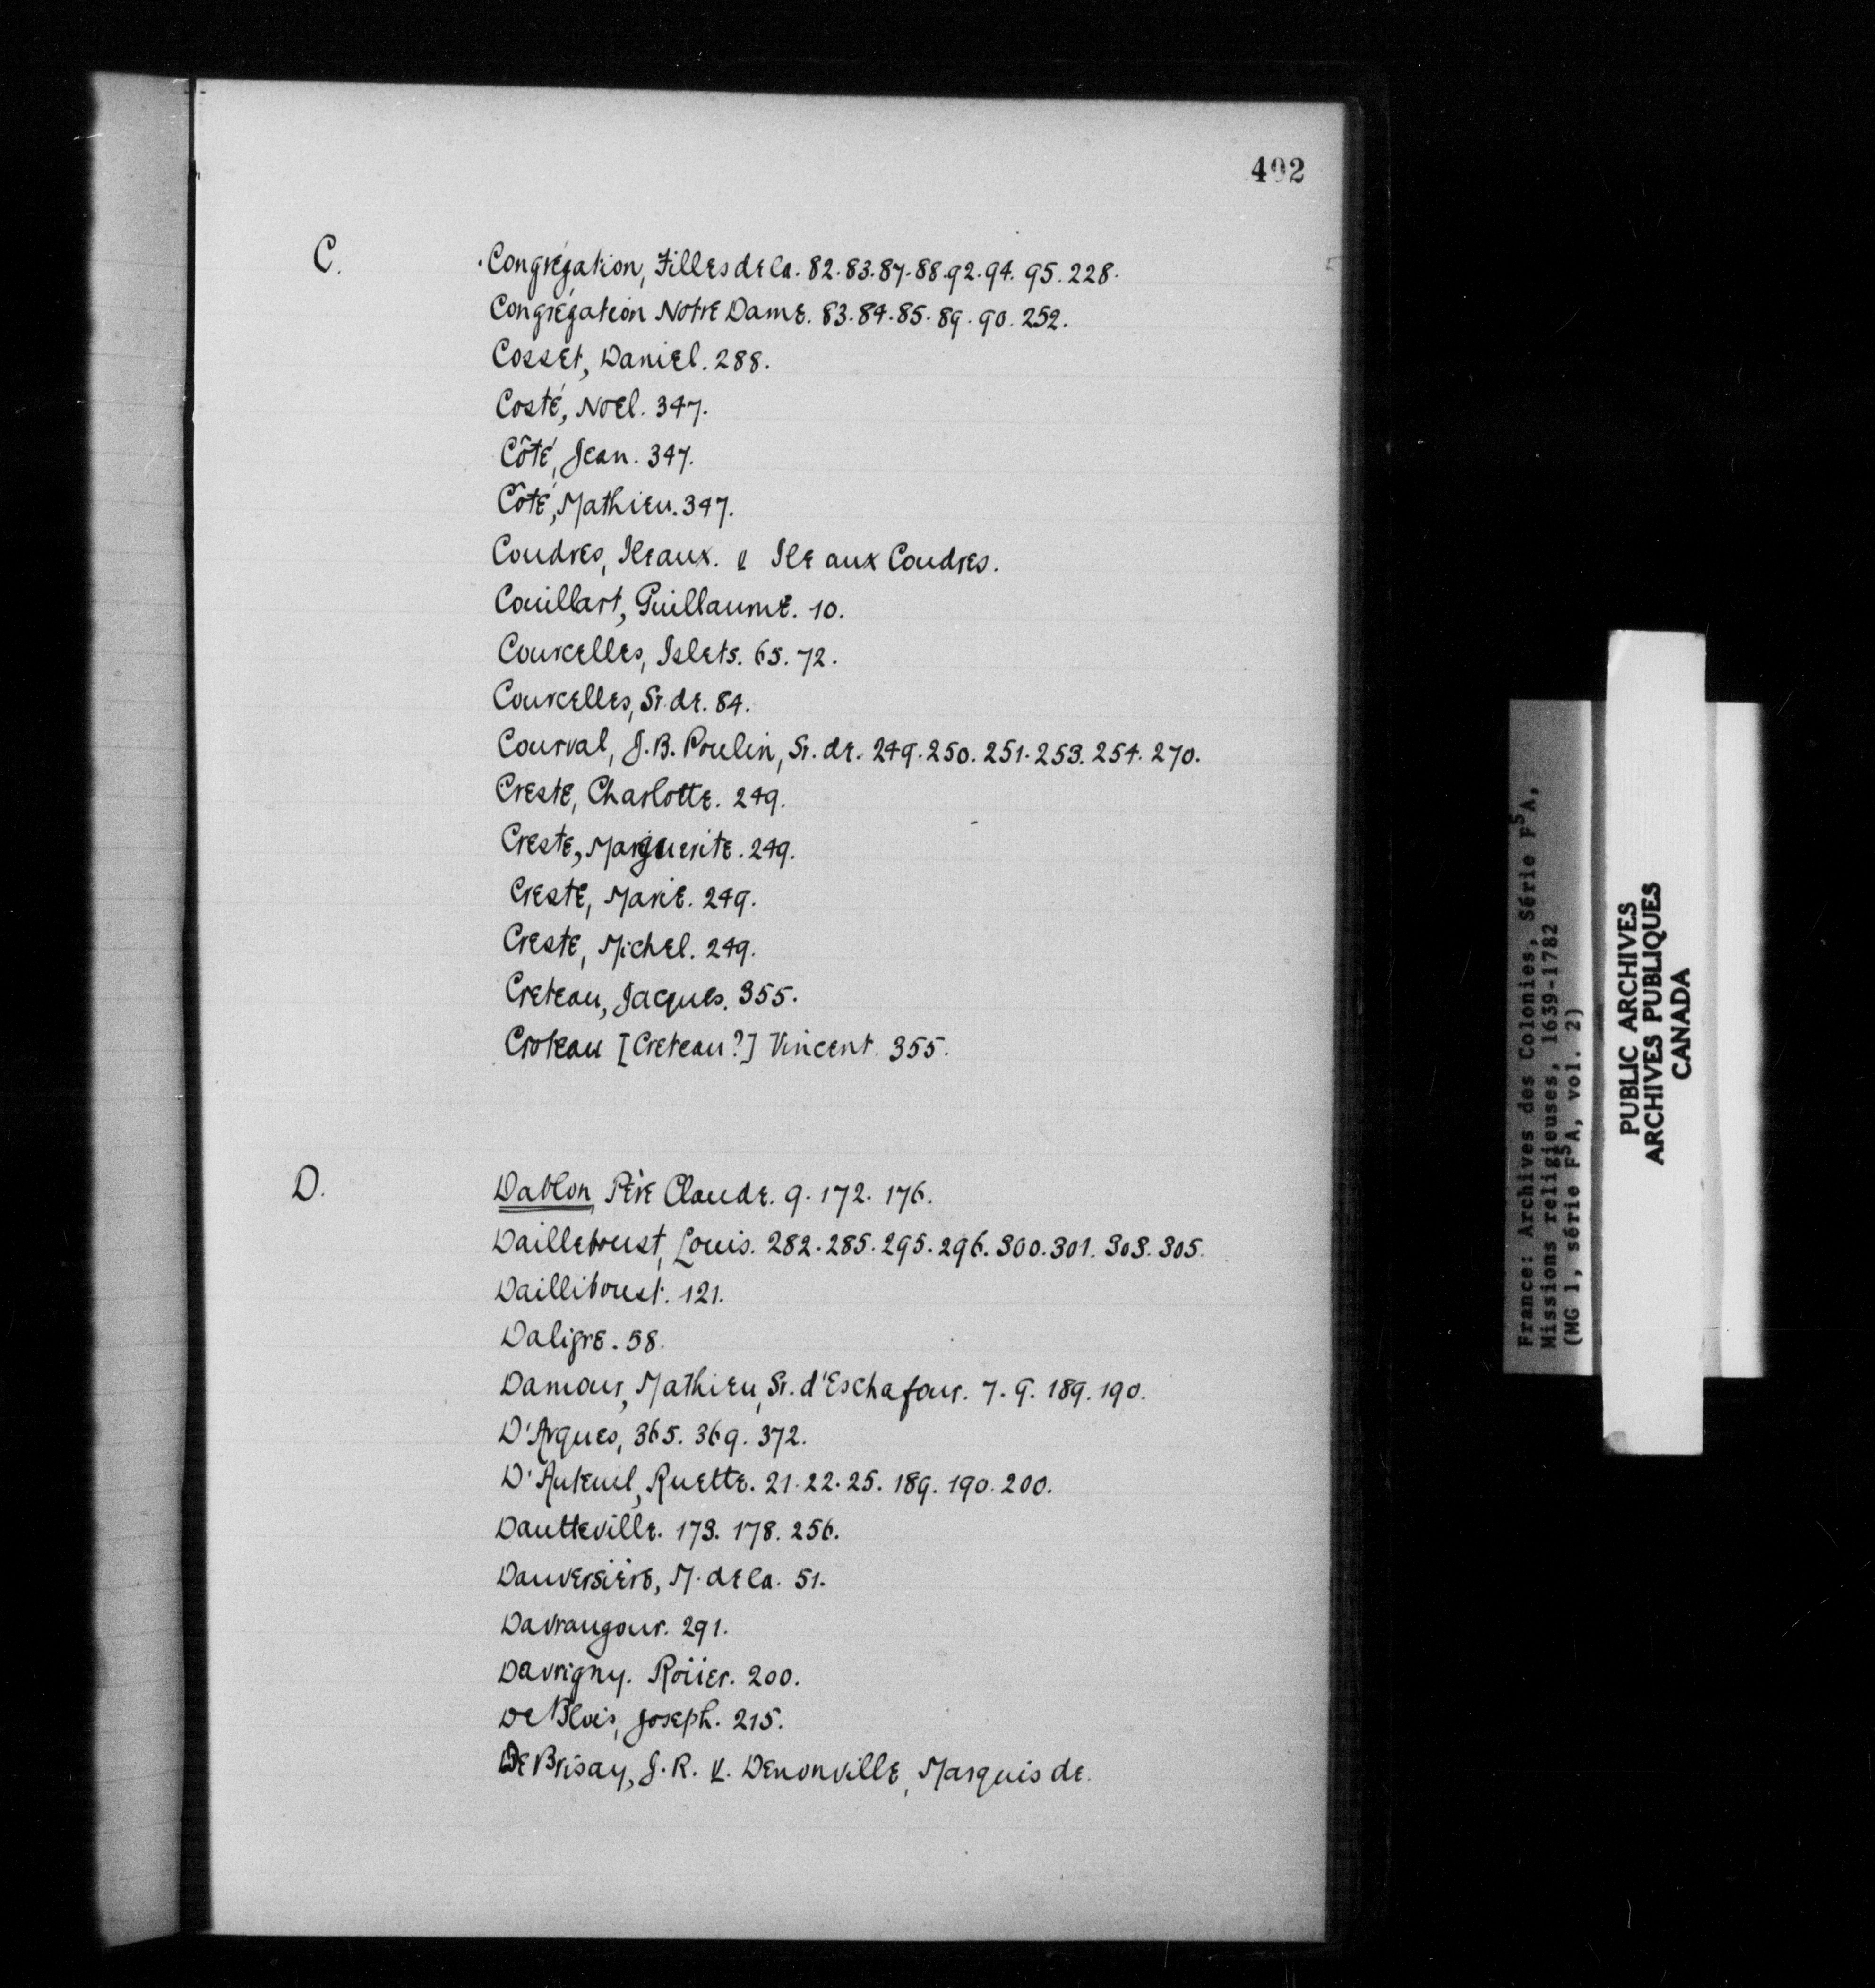 402
C.
Congrégation, Filles de la. 82. 83. 87. 88. 92. 94. 95. 228.
Congrégation Notre Dame. 83. 84. 85. 89. 90. 252.
Cosset, Daniel. 288.
Costé, Noel. 347.
Côté, Jean. 347.
Côté, Mathieu. 347.
Coudres, Ile aux. v Ile aux Coudres.
Couillart, Guillaume. 10.
Courcelles, Islets. 65. 72.
Courcelles, Sr. de. 84.
Courval, J. B. Poulin, Sr. de. 249. 250. 251. 253. 254. 270.
Creste, Charlotte. 249.
Creste, Marguerite. 249.
Creste, Marie. 249.
Creste, Michel. 249.
Creteau, Jacques. 355.
Croteau [Creteau?] Vincent. 355.
D.
Dablon, Père Claude. 9. 172. 176.
Dailleboust, Louis. 282. 285. 295. 296. 300. 301. 303. 305.
Dailliboust. 121.
Daligre. 58.
Damour, Mathieu, Sr. d'Eschafour. 7. 9. 189. 190.
D'Argues, 365. 369. 372.
D'Auteuil, Ruette. 21. 22. 25. 189. 190. 200.
Dautteville. 173. 178. 256.
Dauversière, M. de la. 51.
Davraugour. 291.
Davrigny. Roüer. 200.
De Blois, Joseph. 215.
De Brisay, J. R. v. Denonville, Marquis de.
France: Archives des Colonies, Série F5A,
Missions religieuses, 1639-1782
(MG 1, série F5A, vol. 2)
PUBLIC ARCHIVES
ARCHIVES PUBLIQUES
CANADA